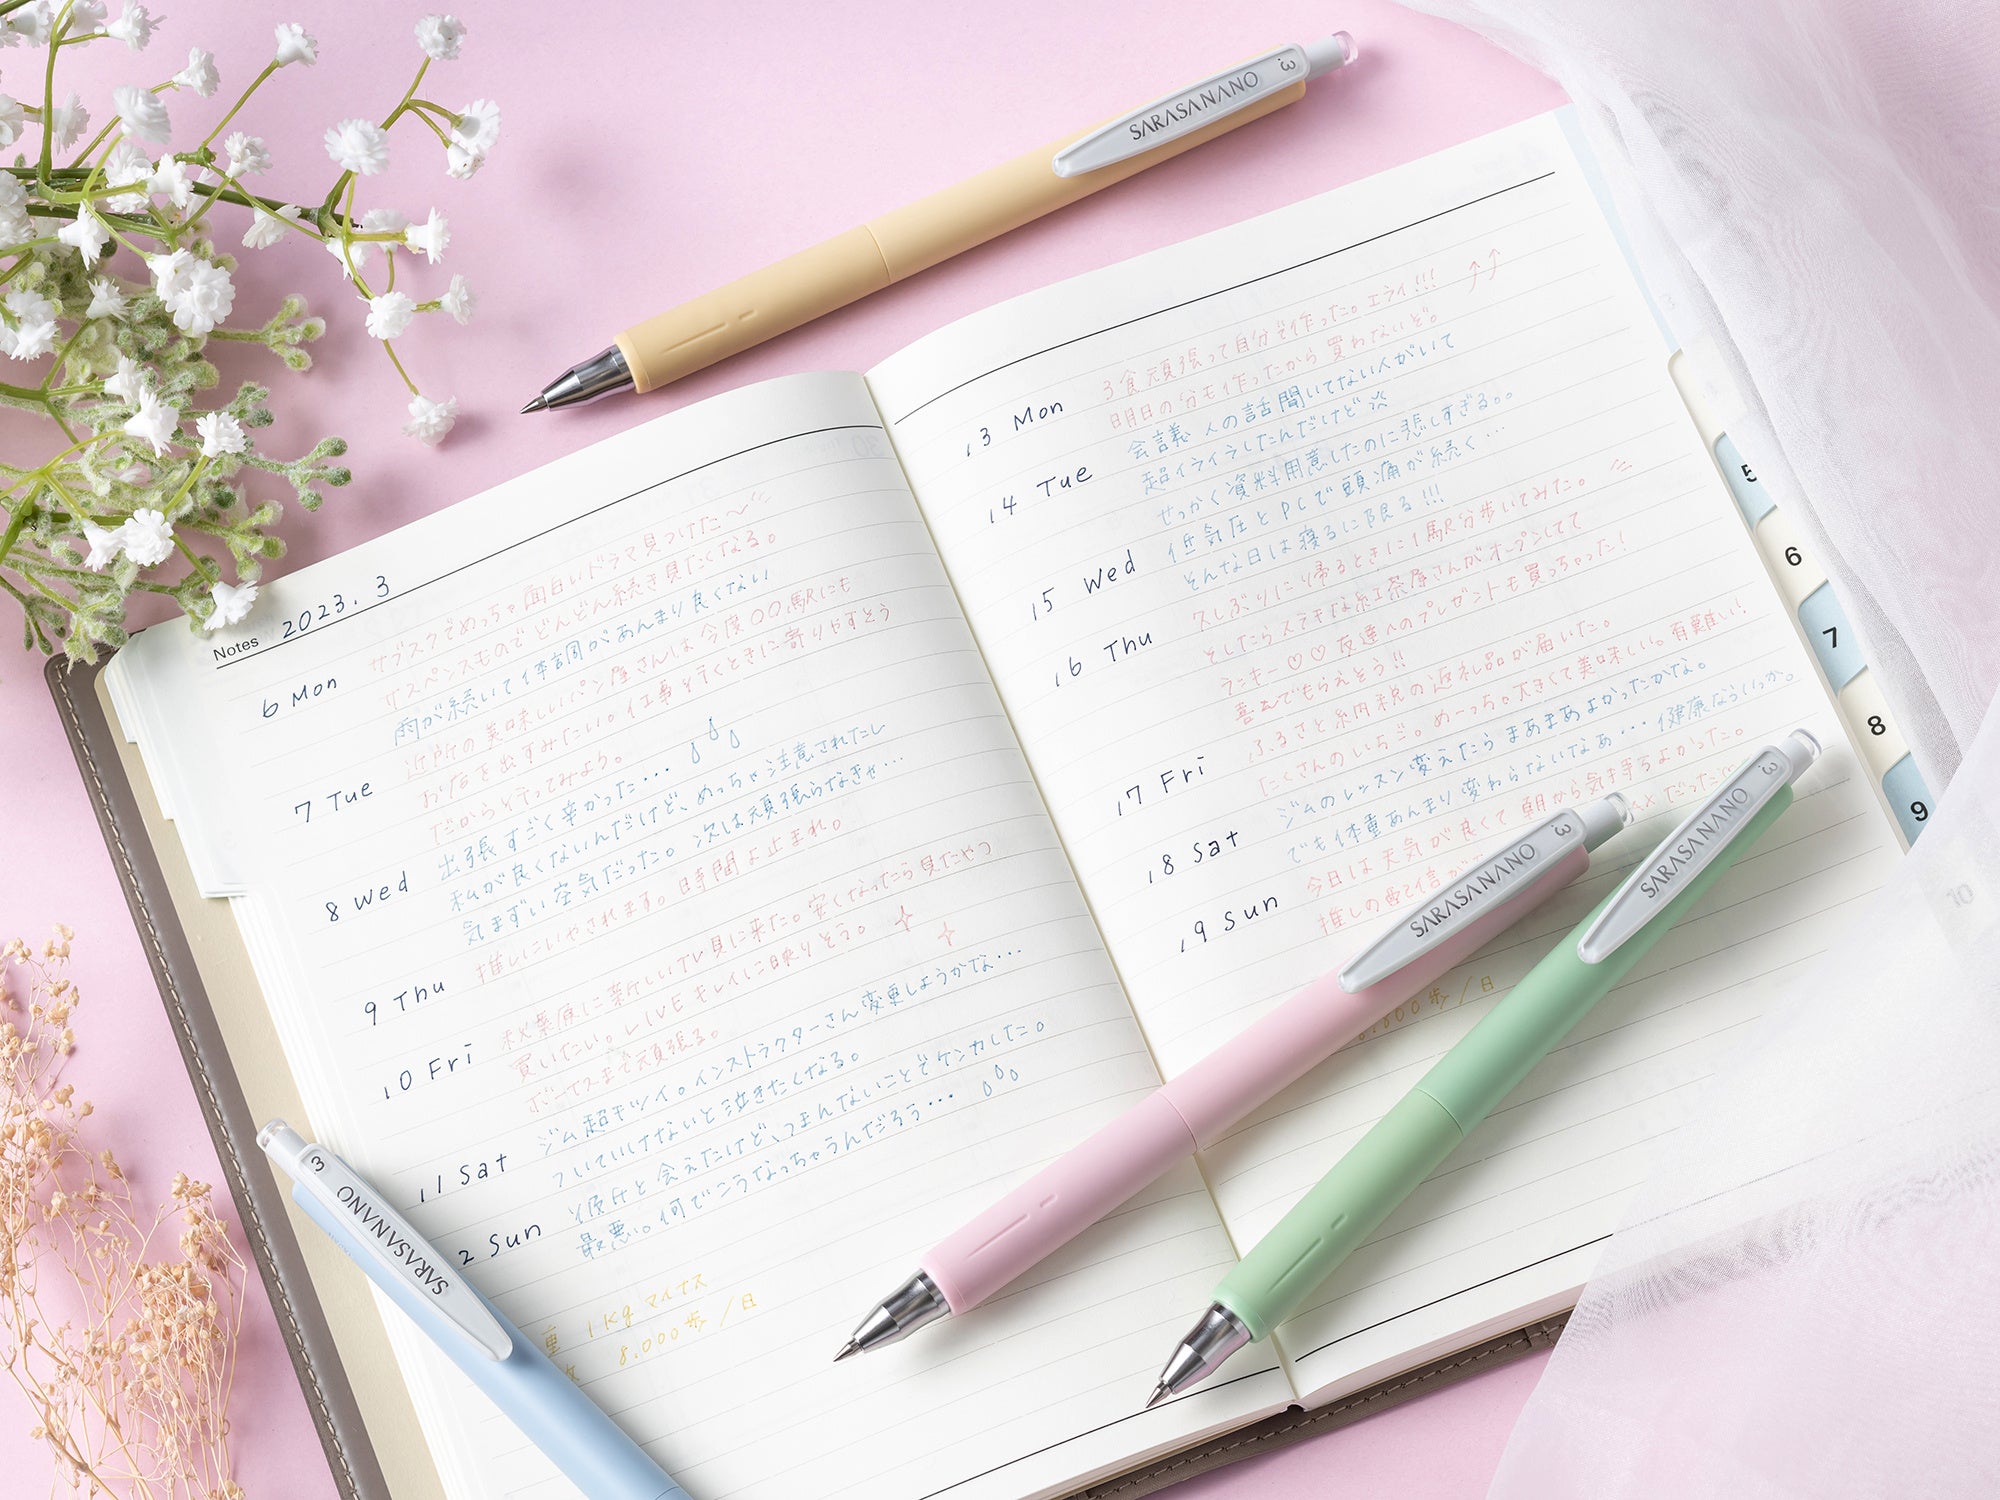 SARASA NANO .3
Notes 2023. 3
6 Mon サブスクでめっちゃ面白いドラマ見つけた〜
サスペンスものでどんどん続き見たくなる。
雨が続いて体調があんまり良くない
7 Tue 近所の美味しいパン屋さんは今度〇〇駅にも
お店を出すみたい。仕事を行くときに寄りやすそう
だから行ってみよう。
8 Wed 出張すごく辛かった…
私が良くないんだけど、めっちゃ注意されたし
気まずい空気だった。次は頑張らなきゃ…
9 Thu 推しにいやされます。時間よ止まれ。
10 Fri 秋葉原に新しいTV見に来た。安くなったら見たやつ
買いたい。LIVEキレイに映りそう。
ボーナスまで頑張る。
11 Sat ジム超キツイ。インストラクターさん変更しようかな…
ついていけないと泣きたくなる。
2 Sun 彼氏と会えたけど、つまんないことでケンカした。
最悪。何でこうなっちゃうんだろう…
重 1Kg マイナス
8.000歩/日
13 Mon 3食頑張って自分で作った。エライ!!! ↑↑
明日の分も作ったから買わないぞ。
14 Tue 会議 人の話聞いてない人がいて
超イライラしたんだけど
せっかく資料用意したのに悲しすぎる。。
15 Wed 低気圧とPCで頭痛が続く…
そんな日は寝るに限る!!!
16 Thu 久しぶりに帰るときに1駅分歩いてみた。
そしたらステキな紅茶屋さんがオープンしてて
ラッキー♡♡ 友達へのプレゼントも買っちゃった!
喜んでもらえそう!!
17 Fri ふるさと納税の返礼品が届いた。
たくさんのいちご。めーっちゃ大きくて美味しい。有難い!
18 Sat ジムのレッスン変えたらまあまあよかったかな。
でも体重あんまり変わらないなあ…健康ならいっか。
19 Sun 今日は天気が良くて朝から気持ちよかった。
推しの配信が
歩/日
5
6
7
8
9
10
SARASA NANO .3
SARASA NANO .3
SARASA NANO .3